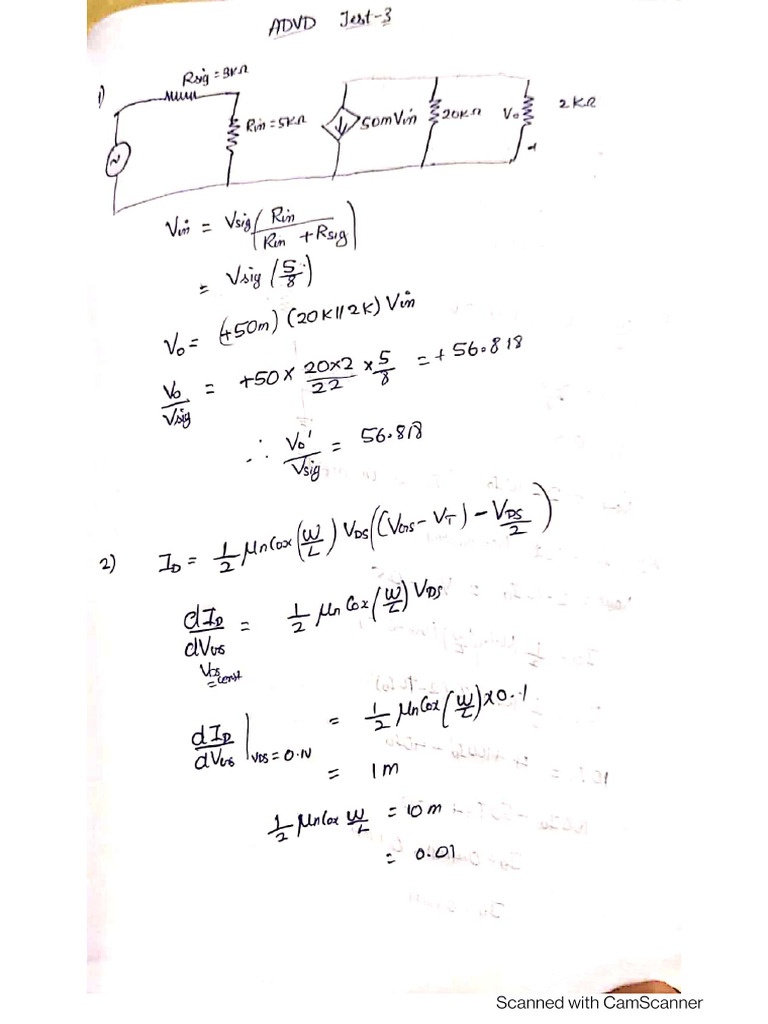 ADVD Test-3
1)
Rsig = 3KΩ
Rin = 5KΩ
50mVin
20KΩ
Vo
2KΩ
Vin = Vsig (Rin / (Rin + Rsig))
= Vsig (5/8)
Vo = (+50m) (20K||2K) Vin
Vo/Vsig = +50 × (20×2)/22 × 5/8 = +56.818
∴ Vo'/Vsig = 56.818
2) ID = 1/2 μnCox (W/L) VDS ((VGS - VT) - VDS/2)
dID/dVGS = 1/2 μn Cox (W/L) VDS
VDS = const
dID/dVGS | VDS = 0.1V = 1/2 μnCox (W/L) × 0.1
= 1m
1/2 μnCox W/L = 10m
= 0.01
Scanned with CamScanner